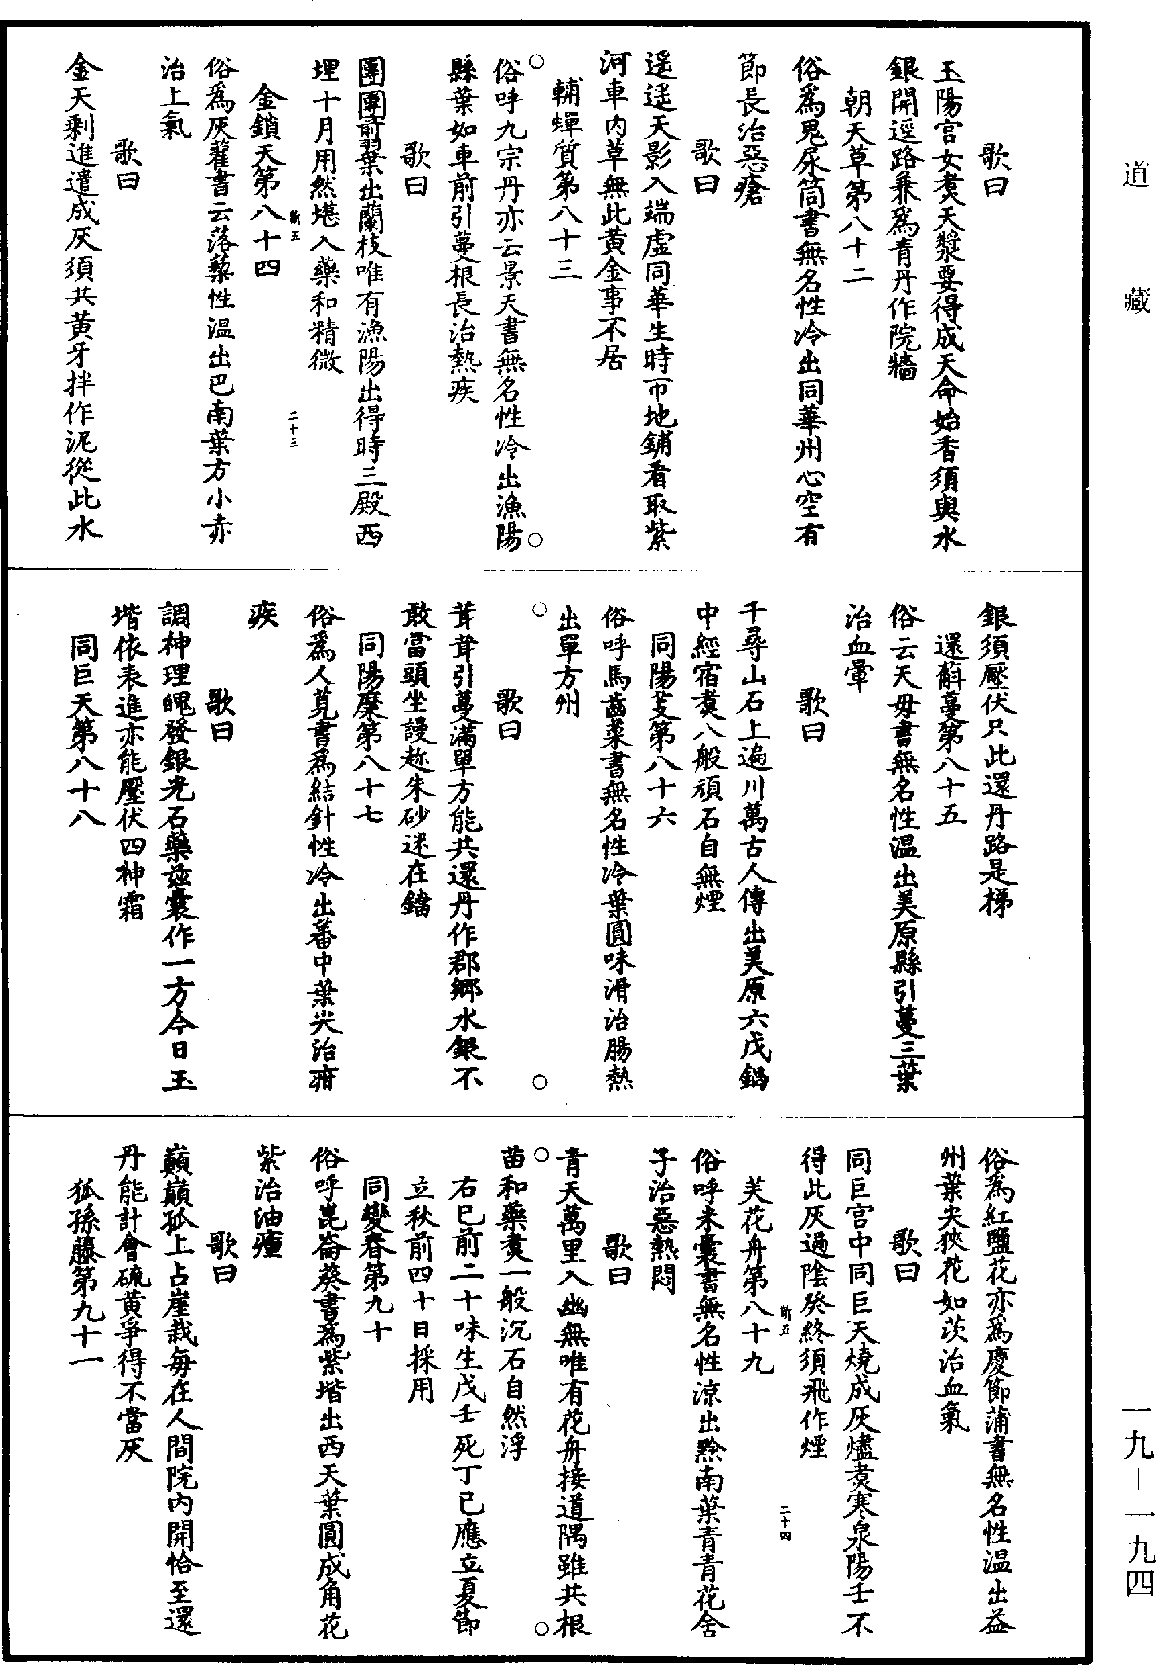 道藏
歌曰
玉陽宮女煮天漿要得成天命始香須與水
銀開逕路兼爲青丹作院牆
朝天草第八十二
俗爲鬼尿筒書無名性冷出同華州心空有
節長治惡瘡
歌曰
遥遥天影入端虛同華生時帀地鋪看取紫
河車內草無此黄金事不居
輔蟬質第八十三
俗呼九宗丹亦云景天書無名性冷出漁陽
縣葉如車前引蔓根長治熱疾
歌曰
團團前葉出蘭枝唯有漁陽出得時三殿西
埋十月用然堪入藥和精微
斯五 二十三
金鎖天第八十四
俗爲灰藋書云落藜性温出巴南葉方小赤
治上氣
歌曰
金天剩進遣成灰須共黄牙拌作泥從此水
銀須壓伏只此還丹路是梯
還蘚蔓第八十五
俗云天母書無名性温出美原縣引蔓三葉
治血暈
歌曰
千尋山石上遍川萬古人傳出美原六戊鍋
中經宿煮八般頑石自無煙
同陽芰第八十六
俗呼馬齒菜書無名性冷葉圓味滑治腸熱
出單方州
歌曰
茸茸引蔓滿單方能共還丹作郡鄉水銀不
敢當頭坐謾趂朱砂迷在鐺
同陽糜第八十七
俗爲人莧書爲結針性冷出蕃中葉尖治疳
疾
歌曰
調神理魄發銀光石藥兹囊作一方今日玉
堦依表進亦能壓伏四神霜
同巨天第八十八
俗爲紅鹽花亦爲慶節蒲書無名性温出益
州葉尖狹花如茨治血氣
歌曰
同巨宮中同巨天燒成灰燼煮寒泉陽壬不
得此灰過陰癸終須飛作煙
斯五 二十四
芙花舟第八十九
俗呼米囊書無名性涼出黔南葉青青花舍
子治惡熱悶
歌曰
青天萬里入幽無唯有花舟接道隅雖共根
苗和藥煮一般沉石自然浮
右巳前二十味生戊壬死丁己應立夏節
立秋前四十日採用
同變春第九十
俗呼崑崙葵書爲紫堦出西天葉圓成角花
紫治油痙
歌曰
巔巔孤上占崖栽每在人間院內開恰至還
丹能計會硫黄爭得不當灰
狐孫藤第九十一
一九—一九四